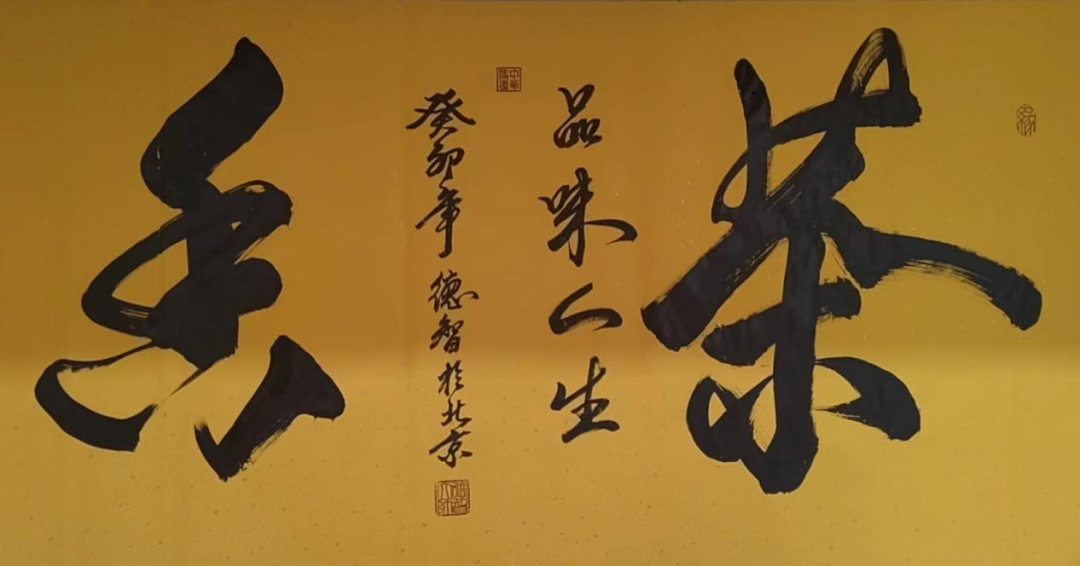 茶
品味人生
癸卯年德智於北京